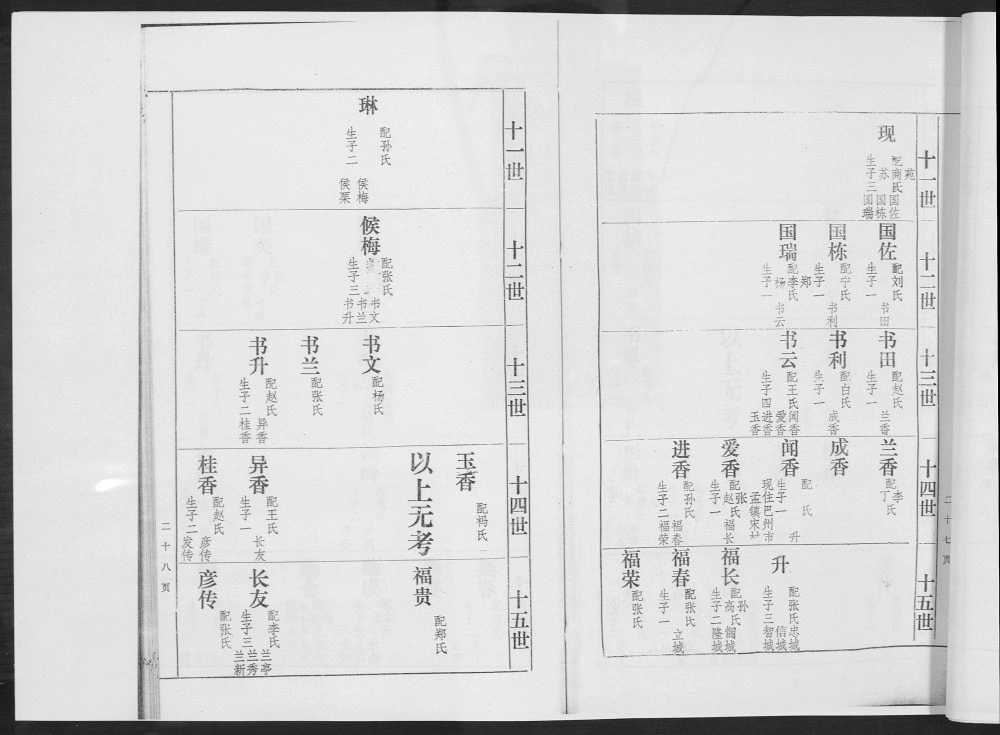 十一世
现
配商氏
苑
苏
生子三
国佐
国栋
国瑞
十二世
国佐
配刘氏
生子一
书田
国栋
配宁氏
生子一
书利
国瑞
配李氏
郑
杨
生子一
书云
十三世
书田
配赵氏
生子一
兰香
书利
配白氏
生子一
成香
书云
配王氏
生子四
闻香
爱香
进香
玉香
十四世
兰香
配李氏
丁
成香
闻香
配 氏
生子一
升
现住巴州市
孟镇宋村
爱香
配赵氏
张
生子一
福长
进香
配孙氏
生子二
福春
福荣
十五世
升
配张氏
生子三
忠城
信城
智城
福长
配高氏
孙
生子二
城
隆城
福春
配张氏
生子一
立城
福荣
配张氏
二十七页
十一世
琳
配孙氏
生子二
侯梅
侯栗
十二世
候梅
配张氏
生子三
书文
书兰
书升
十三世
书文
配杨氏
书兰
配张氏
书升
配赵氏
生子二
异香
桂香
十四世
玉香
配祃氏
以上无考
异香
配王氏
生子一
长友
桂香
配赵氏
生子二
彦传
发传
十五世
福贵
配郑氏
长友
配李氏
生子三
兰亭
兰秀
兰新
彦传
配张氏
二十八页